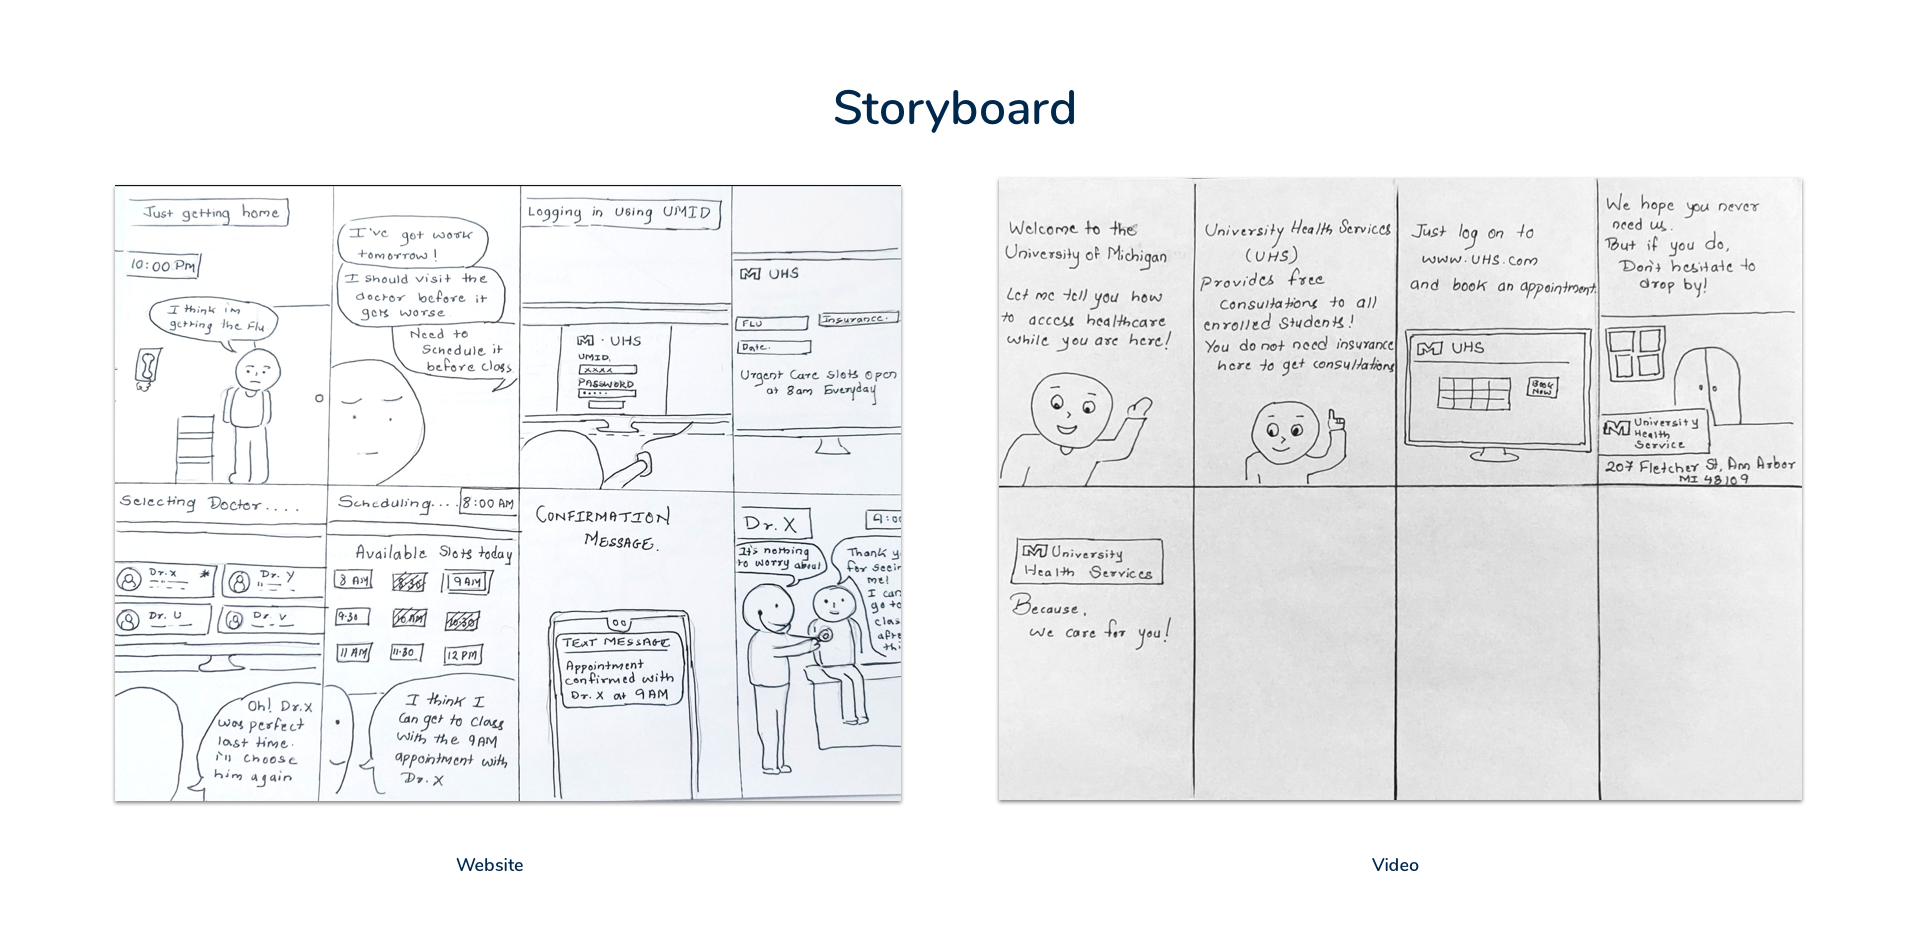 Storyboard
Just getting home
10:00 PM
I think im
getting the Flu.
I've got work
tomorrow!
I should visit the
doctor before it
gets worse.
Need to
Schedule it
before class
Logging in using UMID
M · UHS
UMID.
xxxx
PASSWORD
.....
M UHS
FLU
Insurance.
Date.
Urgent Care slots open
at 8am Everyday
Selecting Doctor....
Dr.X *
Dr. Y
Dr. U
Dr. V
Oh! Dr.X
was perfect
last time.
i'll choose
him again
Scheduling....
8:00 AM
Available Slots today
8 AM 8:30 9AM
9:30 10 AM 10:30
11 AM 11:30 12 PM
I think I
can get to class
with the 9AM
appointment with
Dr. X
CONFIRMATION
MESSAGE.
TEXT MESSAGE
Appointment
confirmed with
Dr. X at 9AM
Dr. X
It's nothing
to worry about
Thank y
for seein
me!
I can
go to
clas
afte
thi
Welcome to the
University of Michigan
Let me tell you how
to access healthcare
while you are here!
University Health Services
(UHS)
Provides free
Consultations to all
enrolled students!
You do not need insurance
here to get consultations
Just log on to
www.UHS.com
and book an appointment.
M UHS
Book
Now
We hope you never
need us.
But if you do,
Don't hesitate to
drop by!
M University
Health
Service
207 Fletcher St, Ann Arbor
MI 48109
M University
Health Services
Because,
we care for you!
Website
Video